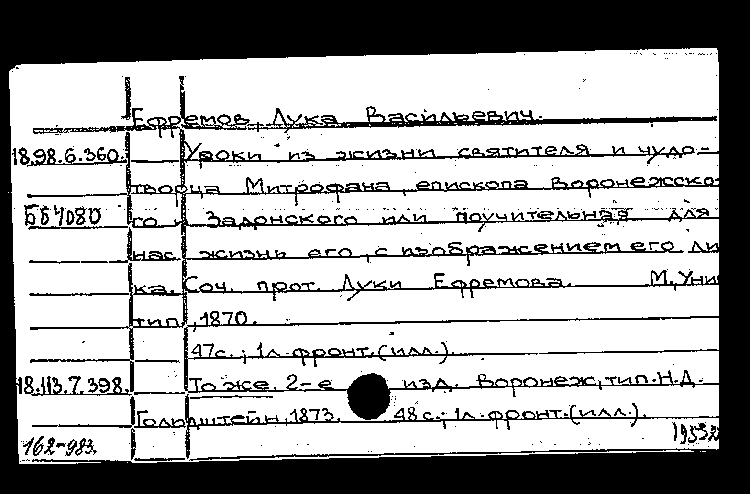 Ефремов, Лука Васильевич.
18.98.6.360. Уроки из жизни святителя и чудо-
творца Митрофана, епископа Воронежско-
ББ4080 го и Задонского или поучительная для
нас жизнь его, с изображением его ли
ка. Соч. прот. Луки Ефремова. М, Уни
тип, 1870.
47с.; 1л. фронт. (илл.).
18.113.7.398. То же. 2-е изд. Воронеж, тип. Н.Д.
Гольдштейн, 1873. 48с.; 1л. фронт. (илл.).
162-983.